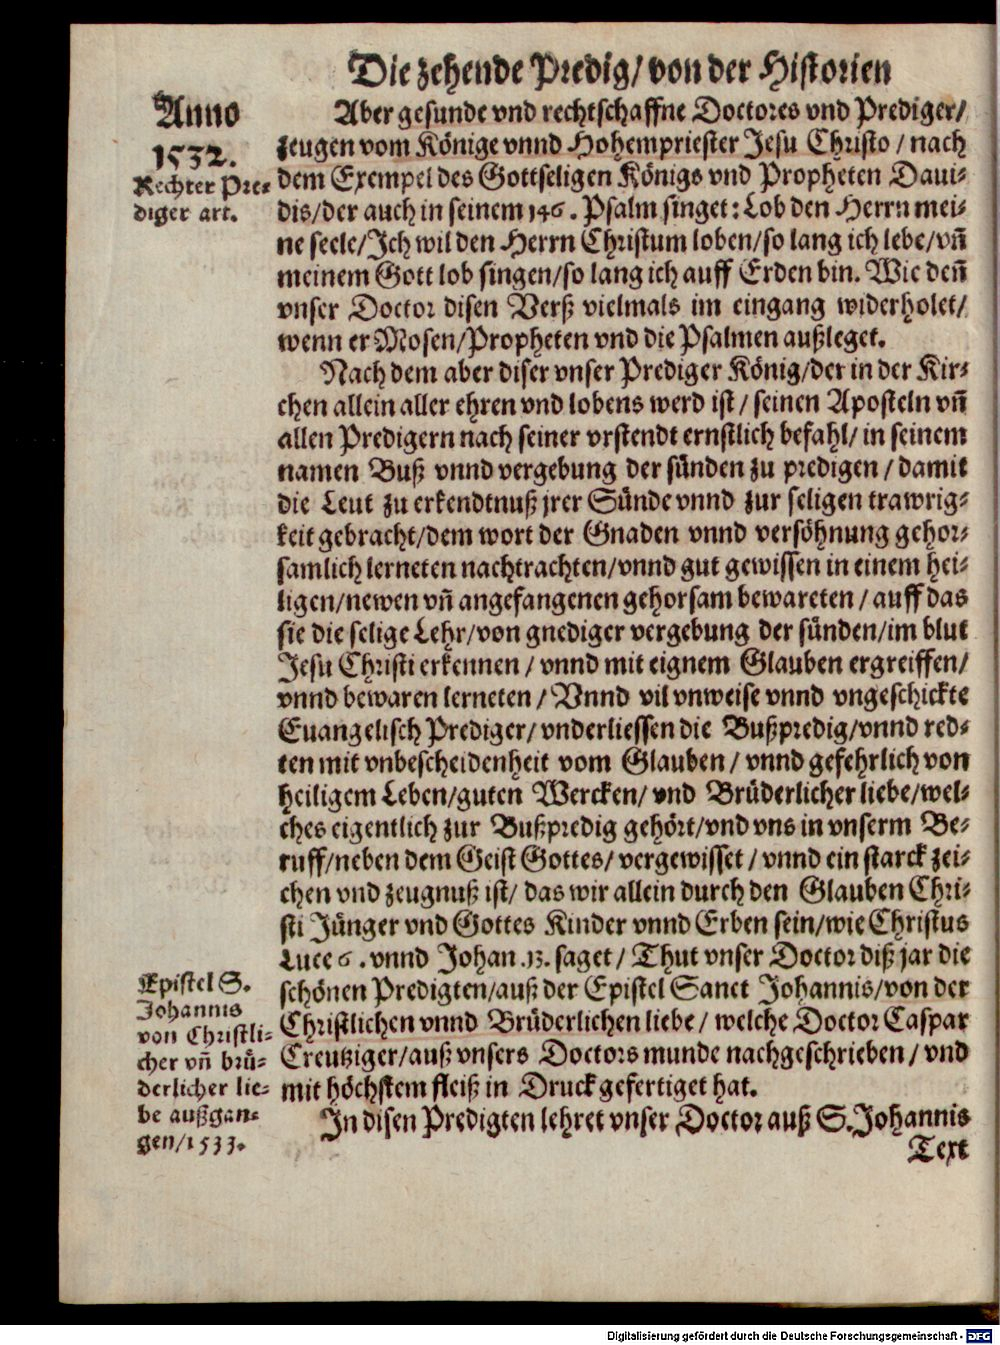 Die zehende Predig/ von der Historien
Anno
1532.
Rechter Pre-
diger art.
Aber gesunde vnd rechtschaffne Doctores vnd Prediger/
zeugen vom Könige vnnd Hohempriester Jesu Christo / nach
dem Exempel des Gottseligen Königs vnd Propheten Daui-
dis/der auch in seinem 146. Psalm singet: Lob den Herrn mei-
ne seele/Ich wil den Herrn Christum loben/so lang ich lebe/vñ
meinem Gott lob singen/so lang ich auff Erden bin. Wie deñ
vnser Doctor disen Verß vielmals im eingang widerholet/
wenn er Mosen/Propheten vnd die Psalmen außleget.
Nach dem aber diser vnser Prediger König/der in der Kir-
chen allein aller ehren vnd lobens werd ist / seinen Aposteln vñ
allen Predigern nach seiner vrstendt ernstlich befahl/ in seinem
namen Buß vnnd vergebung der sünden zu predigen / damit
die Leut zu erkendtnuß jrer Sünde vnnd zur seligen trawrig-
keit gebracht/dem wort der Gnaden vnnd versöhnung gehor-
samlich lerneten nachtrachten/vnnd gut gewissen in einem hei-
ligen/newen vñ angefangenen gehorsam bewareten / auff das
sie die selige Lehr/von gnediger vergebung der sünden/im blut
Jesu Christi erkennen / vnnd mit eignem Glauben ergreiffen/
vnnd bewaren lerneten / Vnnd vil vnweise vnnd vngeschickte
Euangelisch Prediger/ vnderliessen die Bußpredig/vnnd red-
ten mit vnbescheidenheit vom Glauben / vnnd gefehrlich von
heiligem Leben/guten Wercken/ vnd Brüderlicher liebe/wel-
ches eigentlich zur Bußpredig gehört/vnd vns in vnserm Be-
ruff/neben dem Geist Gottes/ vergewisset / vnnd ein starck zei-
chen vnd zeugnuß ist/ das wir allein durch den Glauben Chri-
sti Jünger vnd Gottes Kinder vnnd Erben sein/wie Christus
Luce 6. vnnd Johan. 13. saget / Thut vnser Doctor diß jar die
schönen Predigten/auß der Epistel Sanct Johannis/von der
Christlichen vnnd Brüderlichen liebe / welche Doctor Caspar
Creutziger/auß vnsers Doctors munde nachgeschrieben / vnd
mit höchstem fleiß in Druck gefertiget hat.
Epistel S.
Johannis
von Christli-
cher vñ brü-
derlicher lie-
be außgan-
gen/1533.
In disen Predigten lehret vnser Doctor auß S. Johannis
Text
Digitalisierung gefördert durch die Deutsche Forschungsgemeinschaft - DFG